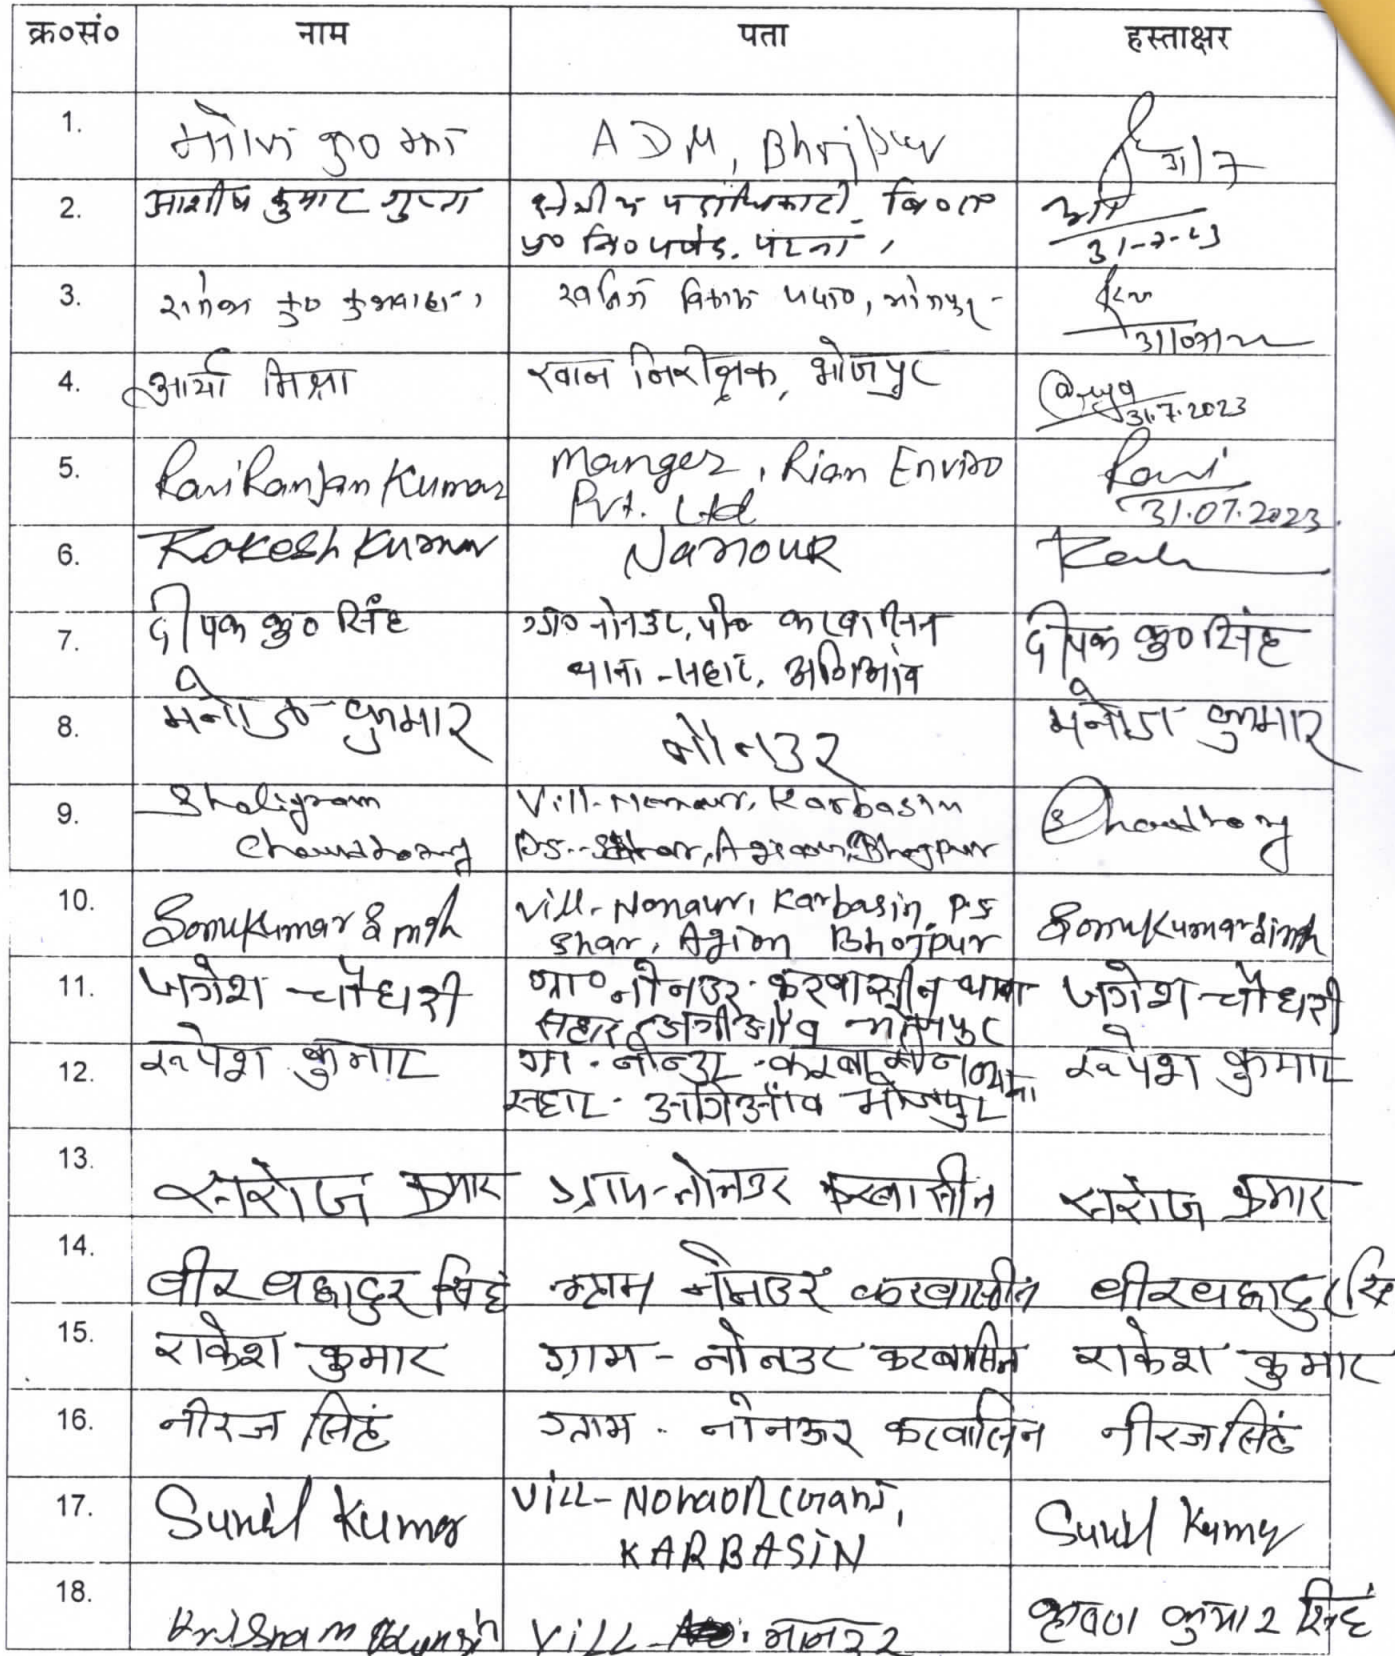 क्र०सं० नाम पता हस्ताक्षर
1. मनोज कु० झा ADM, Bhojpur 31/7
2. आशीष कुमार गुप्ता क्षेत्रीय पदाधिकारी, बि०रा०
प्र० नि० पर्षद, पटना, 31-7-23
3. राजेश कु० कुशवाहा, खनिज विकास पदा०, भोजपुर
4. आर्या मिश्रा खान निरीक्षक, भोजपुर Arya
31.7.2023
5. Ravi Ranjan Kumar Manger, Rian Enviro
Pvt. Ltd Ravi
31.07.2023
6. Rakesh Kumar Nanour
7. दीपक कु० सिंह ग्रा० नोनउर, पो० करबासिन
थाना - सहार, अगिआंव दीपक कु० सिंह
8. मनोज कुमार नोनउर मनोज कुमार
9. Shaligram
Chowdhary Vill- Nonaur, Karbasin
P.S.- Sahar, Agiaon, Bhojpur Choudhary
10. Sonu Kumar Singh Vill- Nonaur, Karbasin, P.S
Shar, Agion Bhojpur Sonu Kumar Singh
11. जगेश चौधरी ग्रा० नोनउर करवासीन थाना
सहार अगीआँव भोजपुर जगेश चौधरी
12. रूपेश कुमार ग्रा- नोनउर - करबासीन थाना
सहार- अगिआँव भोजपुर रूपेश कुमार
13. सरोज कुमार ग्राम-नोनउर करवासीन सरोज कुमार
14. वीर बहादुर सिंह ग्राम नोनउर करवासीन वीर बहादुर
15. राकेश कुमार ग्राम - नोनउर करबासिन राकेश कुमार
16. नीरज सिहं ग्राम - नोनऊर करवासिन नीरज सिहं
17. Sunil Kumar Vill- Nonaor
KARBASIN Sunil Kumar
18. Vill- नोनउर कुमार सिंह